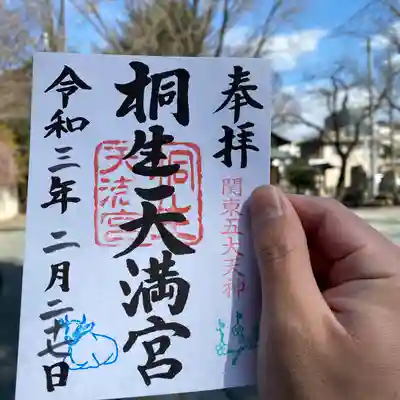 奉拝
関東五大天神
桐生天満宮
令和三年二月二十七日